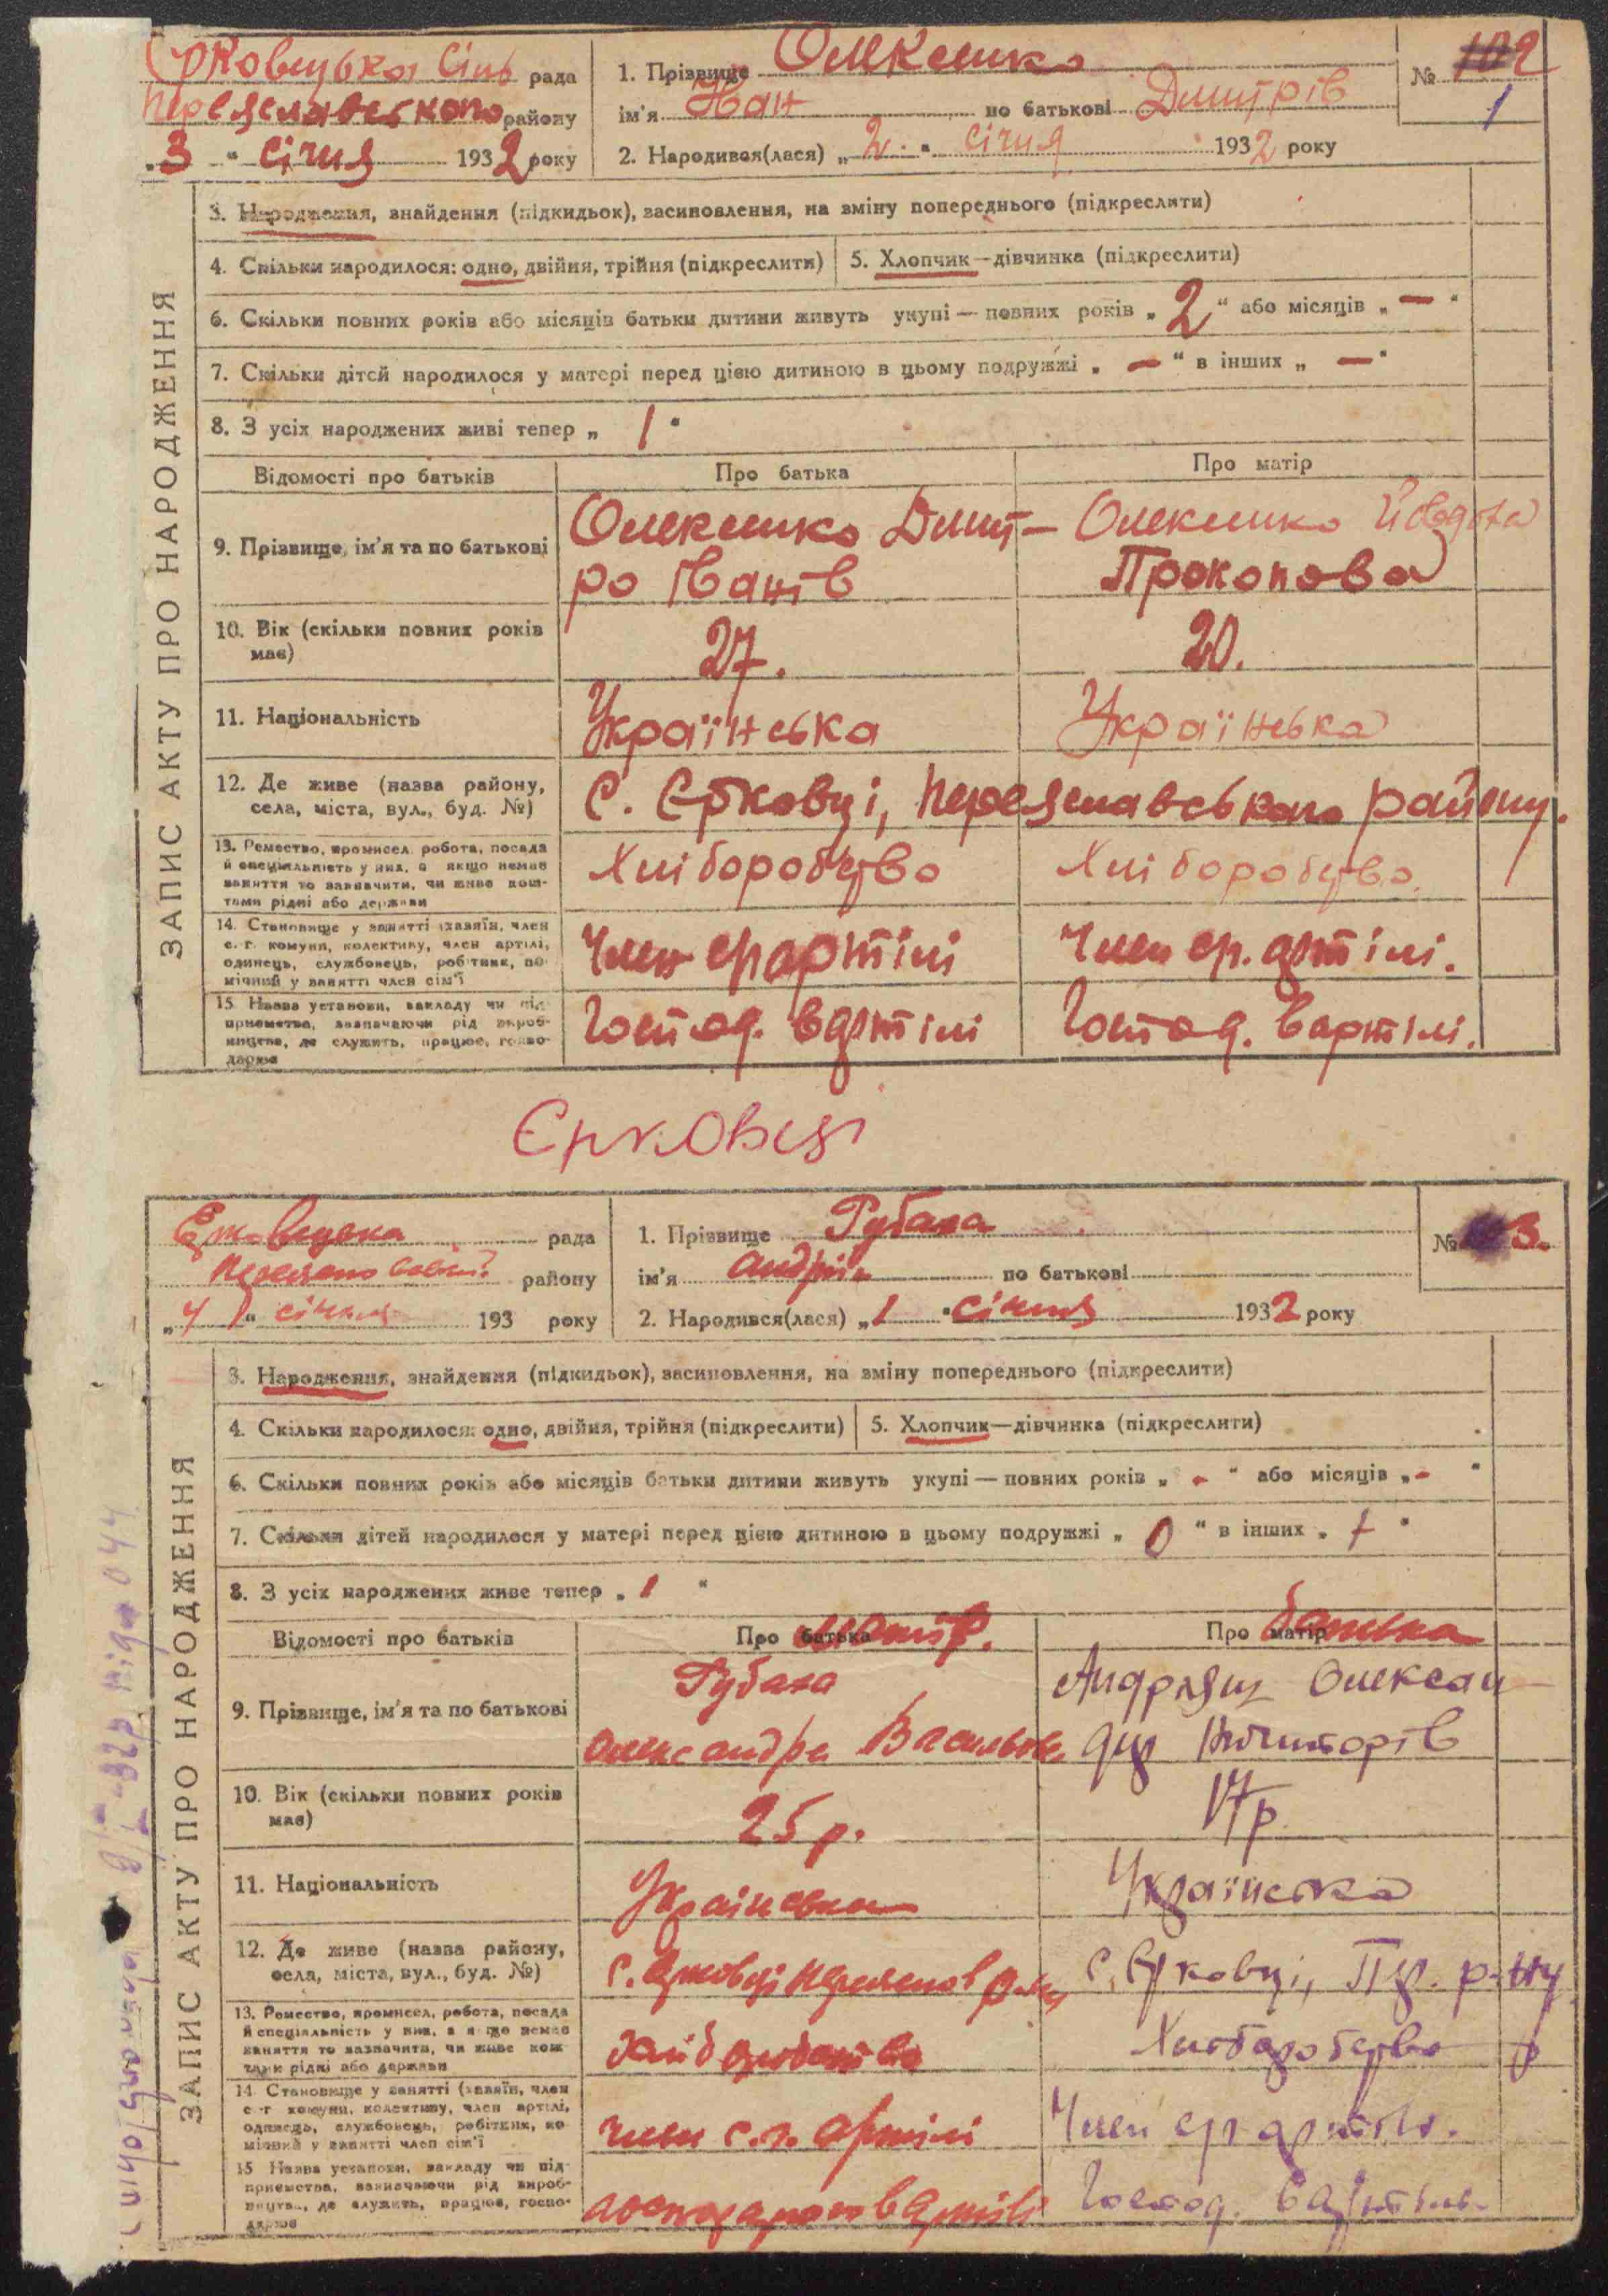 Єрковецька Сіль рада
Переяславського району
„3“ Січня 1932 року
1. Прізвище Олексенко
ім'я Іван по батькові Дмитрів
2. Народився(лася) „2“ січня 1932 року
№ 2
1
ЗАПИС АКТУ ПРО НАРОДЖЕННЯ
3. Народження, знайдення (підкидьок), засиновлення, на зміну попереднього (підкреслити)
4. Скільки народилося: одно, двійня, трійня (підкреслити)
5. Хлопчик—дівчинка (підкреслити)
6. Скільки повних років або місяців батьки дитини живуть укупі — повних років „2“ або місяців „—“
7. Скільки дітей народилося у матері перед цією дитиною в цьому подружжі „—“ в інших „—“
8. З усіх народжених живі тепер „1“
Відомості про батьків
Про батька
Про матір
9. Прізвище, ім'я та по батькові
Олексенко Дмит-
ро Іванів
Олексенко Йовдоха
Прокопова
10. Вік (скільки повних років
має)
27.
20.
11. Національність
Українська
Українська
12. Де живе (назва району,
села, міста, вул., буд. №)
С. Єрковці, Переяславського району.
13. Ремество, промисел, робота, посада
й спеціяльність у них, а якщо немає
заняття то зазначити, чи живе кош-
тами рідні або держави
Хліборобство
Хліборобство
14. Становище у занятті (хазяїн, член
с.-г. комуни, колективу, член артілі,
одинець, службовець, робітник, по-
мічний у занятті член сім'ї
Член сг артілі
Член сг. артілі.
15 Назва установи, закладу чи під-
приємства, зазначаючи рід вироб-
ництва, де служить, працює, госпо-
дарює
Господ. в артілі
Господ. в артілі.
Єрковці
Єрковецька рада
району
„4“ січня 193 року
1. Прізвище Губаха
ім'я Андрій по батькові
2. Народився(лася) „1“ січня 1932 року
№ 3.
ЗАПИС АКТУ ПРО НАРОДЖЕННЯ
3. Народження, знайдення (підкидьок), засиновлення, на зміну попереднього (підкреслити)
4. Скільки народилося: одно, двійня, трійня (підкреслити)
5. Хлопчик—дівчинка (підкреслити)
6. Скільки повних років або місяців батьки дитини живуть укупі — повних років „-“ або місяців „-“
7. Скільки дітей народилося у матері перед цією дитиною в цьому подружжі „0“ в інших „“
8. З усіх народжених живе тепер „1“
Відомості про батьків
Про батька матір.
Про матір батька
9. Прізвище, ім'я та по батькові
Губаха
Олександра Васильов.
Андріяш Олексан
др Ничипорів
10. Вік (скільки повних років
має)
25 р.
17р
11. Національність
Українська
Українська
12. Де живе (назва району,
села, міста, вул., буд. №)
с. Єрковці
С. Єрковці, Пер. р-ну
13. Ремество, промисел, робота, посада
й спеціяльність у них, а якщо немає
заняття то зазначити, чи живе кош-
тами рідні або держави
Хліборобство
Хліборобство
14 Становище у занятті (хазяїн, член
с.-г. комуни, колективу, член артілі,
одинець, службовець, робітник, по-
мічний у занятті член сім'ї
член с.г. артілі
Член сг артілі.
15 Назва установи, закладу чи під-
приємства, зазначаючи рід вироб-
ництва, де служить, працює, госпо-
дарює
господарює в артілі
Господ. в артілі.